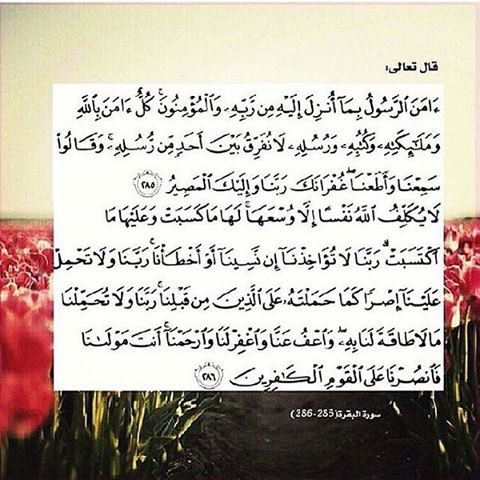 قال تعالى:
ءَامَنَ ٱلرَّسُولُ بِمَآ أُنزِلَ إِلَيْهِ مِن رَّبِّهِۦ وَٱلْمُؤْمِنُونَ ۚ كُلٌّ ءَامَنَ بِٱللَّهِ
وَمَلَـٰٓئِكَتِهِۦ وَكُتُبِهِۦ وَرُسُلِهِۦ لَا نُفَرِّقُ بَيْنَ أَحَدٍ مِّن رُّسُلِهِۦ ۚ وَقَالُوا۟
سَمِعْنَا وَأَطَعْنَا ۖ غُفْرَانَكَ رَبَّنَا وَإِلَيْكَ ٱلْمَصِيرُ ٢٨٥
لَا يُكَلِّفُ ٱللَّهُ نَفْسًا إِلَّا وُسْعَهَا ۚ لَهَا مَا كَسَبَتْ وَعَلَيْهَا مَا
ٱكْتَسَبَتْ ۗ رَبَّنَا لَا تُؤَاخِذْنَآ إِن نَّسِينَآ أَوْ أَخْطَأْنَا ۚ رَبَّنَا وَلَا تَحْمِلْ
عَلَيْنَآ إِصْرًا كَمَا حَمَلْتَهُۥ عَلَى ٱلَّذِينَ مِن قَبْلِنَا ۚ رَبَّنَا وَلَا تُحَمِّلْنَا
مَا لَا طَاقَةَ لَنَا بِهِۦ ۖ وَٱعْفُ عَنَّا وَٱغْفِرْ لَنَا وَٱرْحَمْنَآ ۚ أَنتَ مَوْلَىٰنَا
فَٱنصُرْنَا عَلَى ٱلْقَوْمِ ٱلْكَـٰفِرِينَ ٢٨٦
سورة البقرة(285-286)